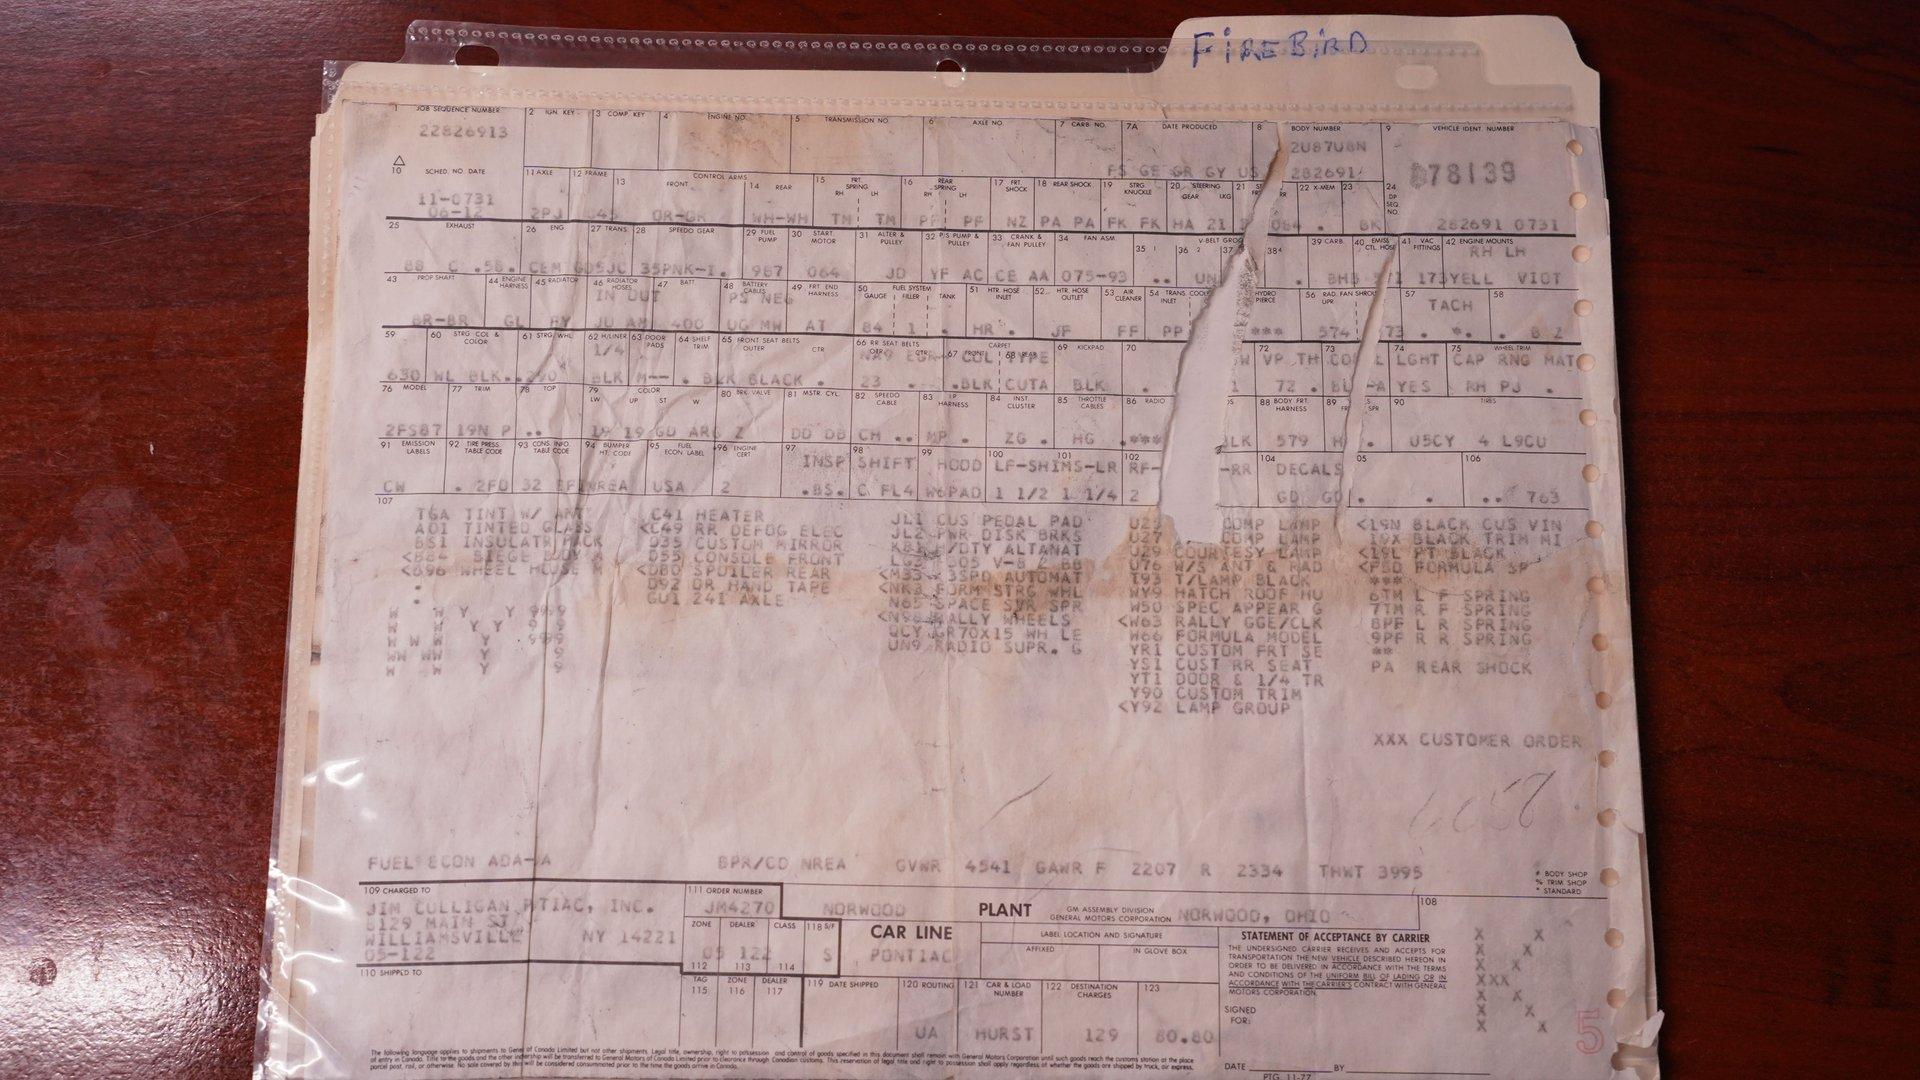 FiREBiRD
1 JOB SEQUENCE NUMBER 2 IGN. KEY 3 COMP. KEY 4 ENGINE NO. 5 TRANSMISSION NO. 6 AXLE NO. 7 CARB. NO. 7A DATE PRODUCED 8 BODY NUMBER 9 VEHICLE IDENT. NUMBER
22826913 2U87U8N
FS GE GR GY US 282691 78139
10 SCHED. NO. DATE 11 AXLE 12 FRAME 13 CONTROL ARMS FRONT 14 REAR 15 FRT. SPRING RH LH 16 REAR SPRING RH LH 17 FRT. SHOCK 18 REAR SHOCK 19 STRG. KNUCKLE 20 STEERING GEAR LKG 21 22 X-MEM 23 24 DP SEQ. NO.
11-0731
06-12 2PJ 045 OR-GR WH-WH TM TM PF PF NZ PA PA FK FK HA 21 064 . BK 282691 0731
25 EXHAUST 26 ENG 27 TRANS 28 SPEDO GEAR 29 FUEL PUMP 30 START. MOTOR 31 ALTER & PULLEY 32 P/S PUMP & PULLEY 33 CRANK & FAN PULLEY 34 FAN ASM. V-BELT GROUP 35 1 36 2 37 38 4 39 CARB. 40 EMISS CTL. HOSE 41 VAC FITTINGS 42 ENGINE MOUNTS
RH LH
88 C .58. CEM GDSJC 35PNK-I. 987 064 JD YF AC CE AA 075-93 .. UN . BHB 173YELL VIOT
43 PROP SHAFT 44 ENGINE HARNESS 45 RADIATOR 46 RADIATOR HOSES 47 BATT 48 BATTERY CABLES 49 FRT. END HARNESS 50 FUEL SYSTEM GAUGE FILLER TANK 51 HTR. HOSE INLET 52 HTR. HOSE OUTLET 53 AIR CLEANER 54 TRANS. HYDRO PIERCE 56 RAD. FAN SHROUD UPR 57 58
IN OUT PS NEG TACH
BR-BR GL BY JU AM 400 UG MW AT 84 1 . HR . JF FF PP *** 574 73 . *. . 8 2
59 60 STRG. COL & COLOR 61 STRG/WHL 62 H/LINER 63 DOOR PADS 64 SHELF TRIM 65 FRONT SEAT BELTS OUTER CTR 66 RR SEAT BELTS 67 CARPET FRONT 68 69 KICKPAD 70 72 73 74 75 WHEEL TRIM
1/4 COL TYPE VP TH LGHT CAP RNG MAT
630 WL BLK..290 BLK M-- . BLK BLACK . 23 . .BLK CUTA BLK 72 . YES RH PJ .
76 MODEL 77 TRIM 78 TOP 79 COLOR LW UP ST W 80 BRK. VALVE 81 MSTR. CYL. 82 SPEEDO CABLE 83 I.P. HARNESS 84 INST CLUSTER 85 THROTTLE CABLES 86 RADIO 88 BODY FRT. HARNESS 89 90 TIRES
2FS87 19N P .. 19 19 GD ARG Z DD DB CH .. MP . ZG . HG .*** LK 579 H . U5CY 4 L9CU
91 EMISSION LABELS 92 TIRE PRESS. TABLE CODE 93 CONS. INFO. TABLE CODE 94 BUMPER HT. CODE 95 FUEL ECON LABEL 96 ENGINE CERT 97 98 99 100 101 102 104 05 106
INSP SHIFT HOOD LF-SHIMS-LR RF- -RR DECALS
CW . 2FU 32 EFINREA USA 2 .BS. C FL4 W6PAD 1 1/2 1 1/4 2 GD GD . . .. 763
107
TGA TINT W/ ANT C41 HEATER JL1 CUS PEDAL PAD U25 COMP LAMP <19N BLACK CUS VIN
A01 TINTED GLASS <C49 RR DEFOG ELEC JL2 PWR DISK BRKS U27 COMP LAMP 19X BLACK TRIM MI
BS1 INSULATN PACK D35 CUSTOM MIRROR /DTY ALTANAT U29 COURTESY LAMP <19L PT BLACK
<B84 SIEGE BODY M D55 CONSOLE FRONT 305 V-8 2 BB U76 W/S ANT & RAD <FBD FORMULA SP
<B96 WHEEL HOUSE M <D80 SPOILER REAR <M33 3SPD AUTOMAT T93 T/LAMP BLACK ***
D92 OR HAND TAPE <NK3 FORM STRG WHL WY9 HATCH ROOF HU 6TM L F SPRING
GU1 241 AXLE N65 SPACE SVR SPR W50 SPEC APPEAR G 7TM R F SPRING
<N98 RALLY WHEELS <W63 RALLY GGE/CLK 8PF L R SPRING
QCY R70X15 WH LE W66 FORMULA MODEL 9PF R R SPRING
UN9 RADIO SUPR. G YR1 CUSTOM FRT SE **
YS1 CUST RR SEAT PA REAR SHOCK
YT1 DOOR & 1/4 TR
Y90 CUSTOM TRIM
<Y92 LAMP GROUP
W W Y Y 999
W W Y Y 9
W W W Y 999
WW WW Y 9
W W Y 9
XXX CUSTOMER ORDER
FUEL ECON ADA-A BPR/CD NREA GVWR 4541 GAWR F 2207 R 2334 THWT 3995
# BODY SHOP
% TRIM SHOP
* STANDARD
109 CHARGED TO 111 ORDER NUMBER 108
JIM CULLIGAN PTIAC, INC. JM4270 NORWOOD PLANT GM ASSEMBLY DIVISION
GENERAL MOTORS CORPORATION NORWOOD, OHIO
8129 MAIN ST
WILLIAMSVILLE NY 14221
05-122
ZONE DEALER CLASS 118 S/F
05 122 S
112 113 114
CAR LINE
PONTIAC
LABEL LOCATION AND SIGNATURE
AFFIXED IN GLOVE BOX
STATEMENT OF ACCEPTANCE BY CARRIER
THE UNDERSIGNED CARRIER RECEIVES AND ACCEPTS FOR
TRANSPORTATION THE NEW VEHICLE DESCRIBED HEREON IN
ORDER TO BE DELIVERED IN ACCORDANCE WITH THE TERMS
AND CONDITIONS OF THE UNIFORM BILL OF LADING OR IN
ACCORDANCE WITH THE CARRIER'S CONTRACT WITH GENERAL
MOTORS CORPORATION.
SIGNED
FOR:
X X
X X
X X
XXX
X X
X X
X X
110 SHIPPED TO TAG 115 ZONE 116 DEALER 117 119 DATE SHIPPED 120 ROUTING 121 CAR & LOAD NUMBER 122 DESTINATION CHARGES 123
UA HURST 129 80.80
5
The following language applies to shipments to General Motors of Canada Limited but not other shipments. Legal title, ownership, right to possession and control of goods specified in this document shall remain with General Motors Corporation until such goods reach the customs station at the place
of entry in Canada. Title to the goods and the other indership will be transferred to General Motors of Canada Limited prior to clearance through Canadian customs. This reservation of legal title and right to possession shall apply regardless of whether the goods are shipped by truck, air express,
parcel post, rail, or otherwise. No sale covered by this will be considered consummated prior to the time the goods arrive in Canada.
DATE BY
PTG. 11-77